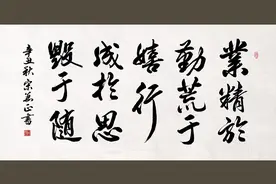 業精於
勤荒于
嬉行
成於思
毀于随
辛丑秋宋益正書